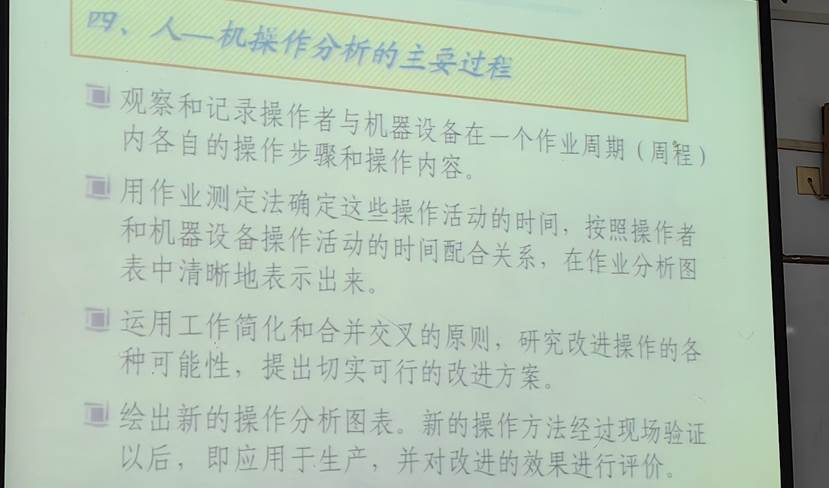 四、人—机操作分析的主要过程
观察和记录操作者与机器设备在一个作业周期（周程）
内各自的操作步骤和操作内容。
用作业测定法确定这些操作活动的时间，按照操作者
和机器设备操作活动的时间配合关系，在作业分析图
表中清晰地表示出来。
运用工作简化和合并交叉的原则，研究改进操作的各
种可能性，提出切实可行的改进方案。
绘出新的操作分析图表。新的操作方法经过现场验证
以后，即应用于生产，并对改进的效果进行评价。